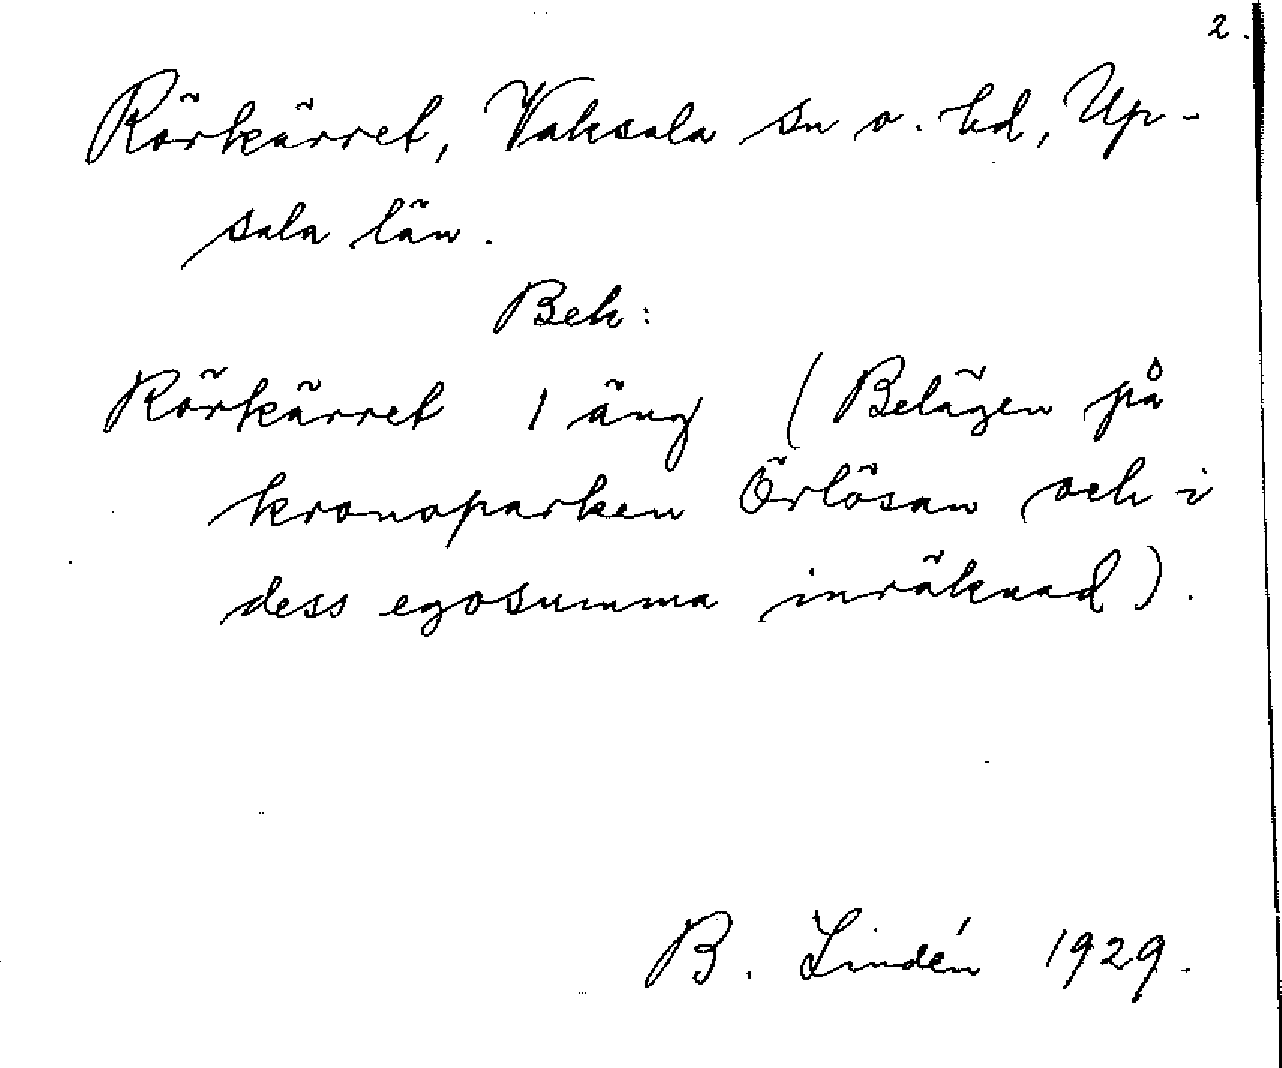 2.
Rörkärret, Vaksala sn o. hd, Up-
sala län.
Bek:
Rörkärret 1 äng (Belägen på
kronoparken Örlösan och i
dess egosumma inräknad).
B. Lindén 1929.